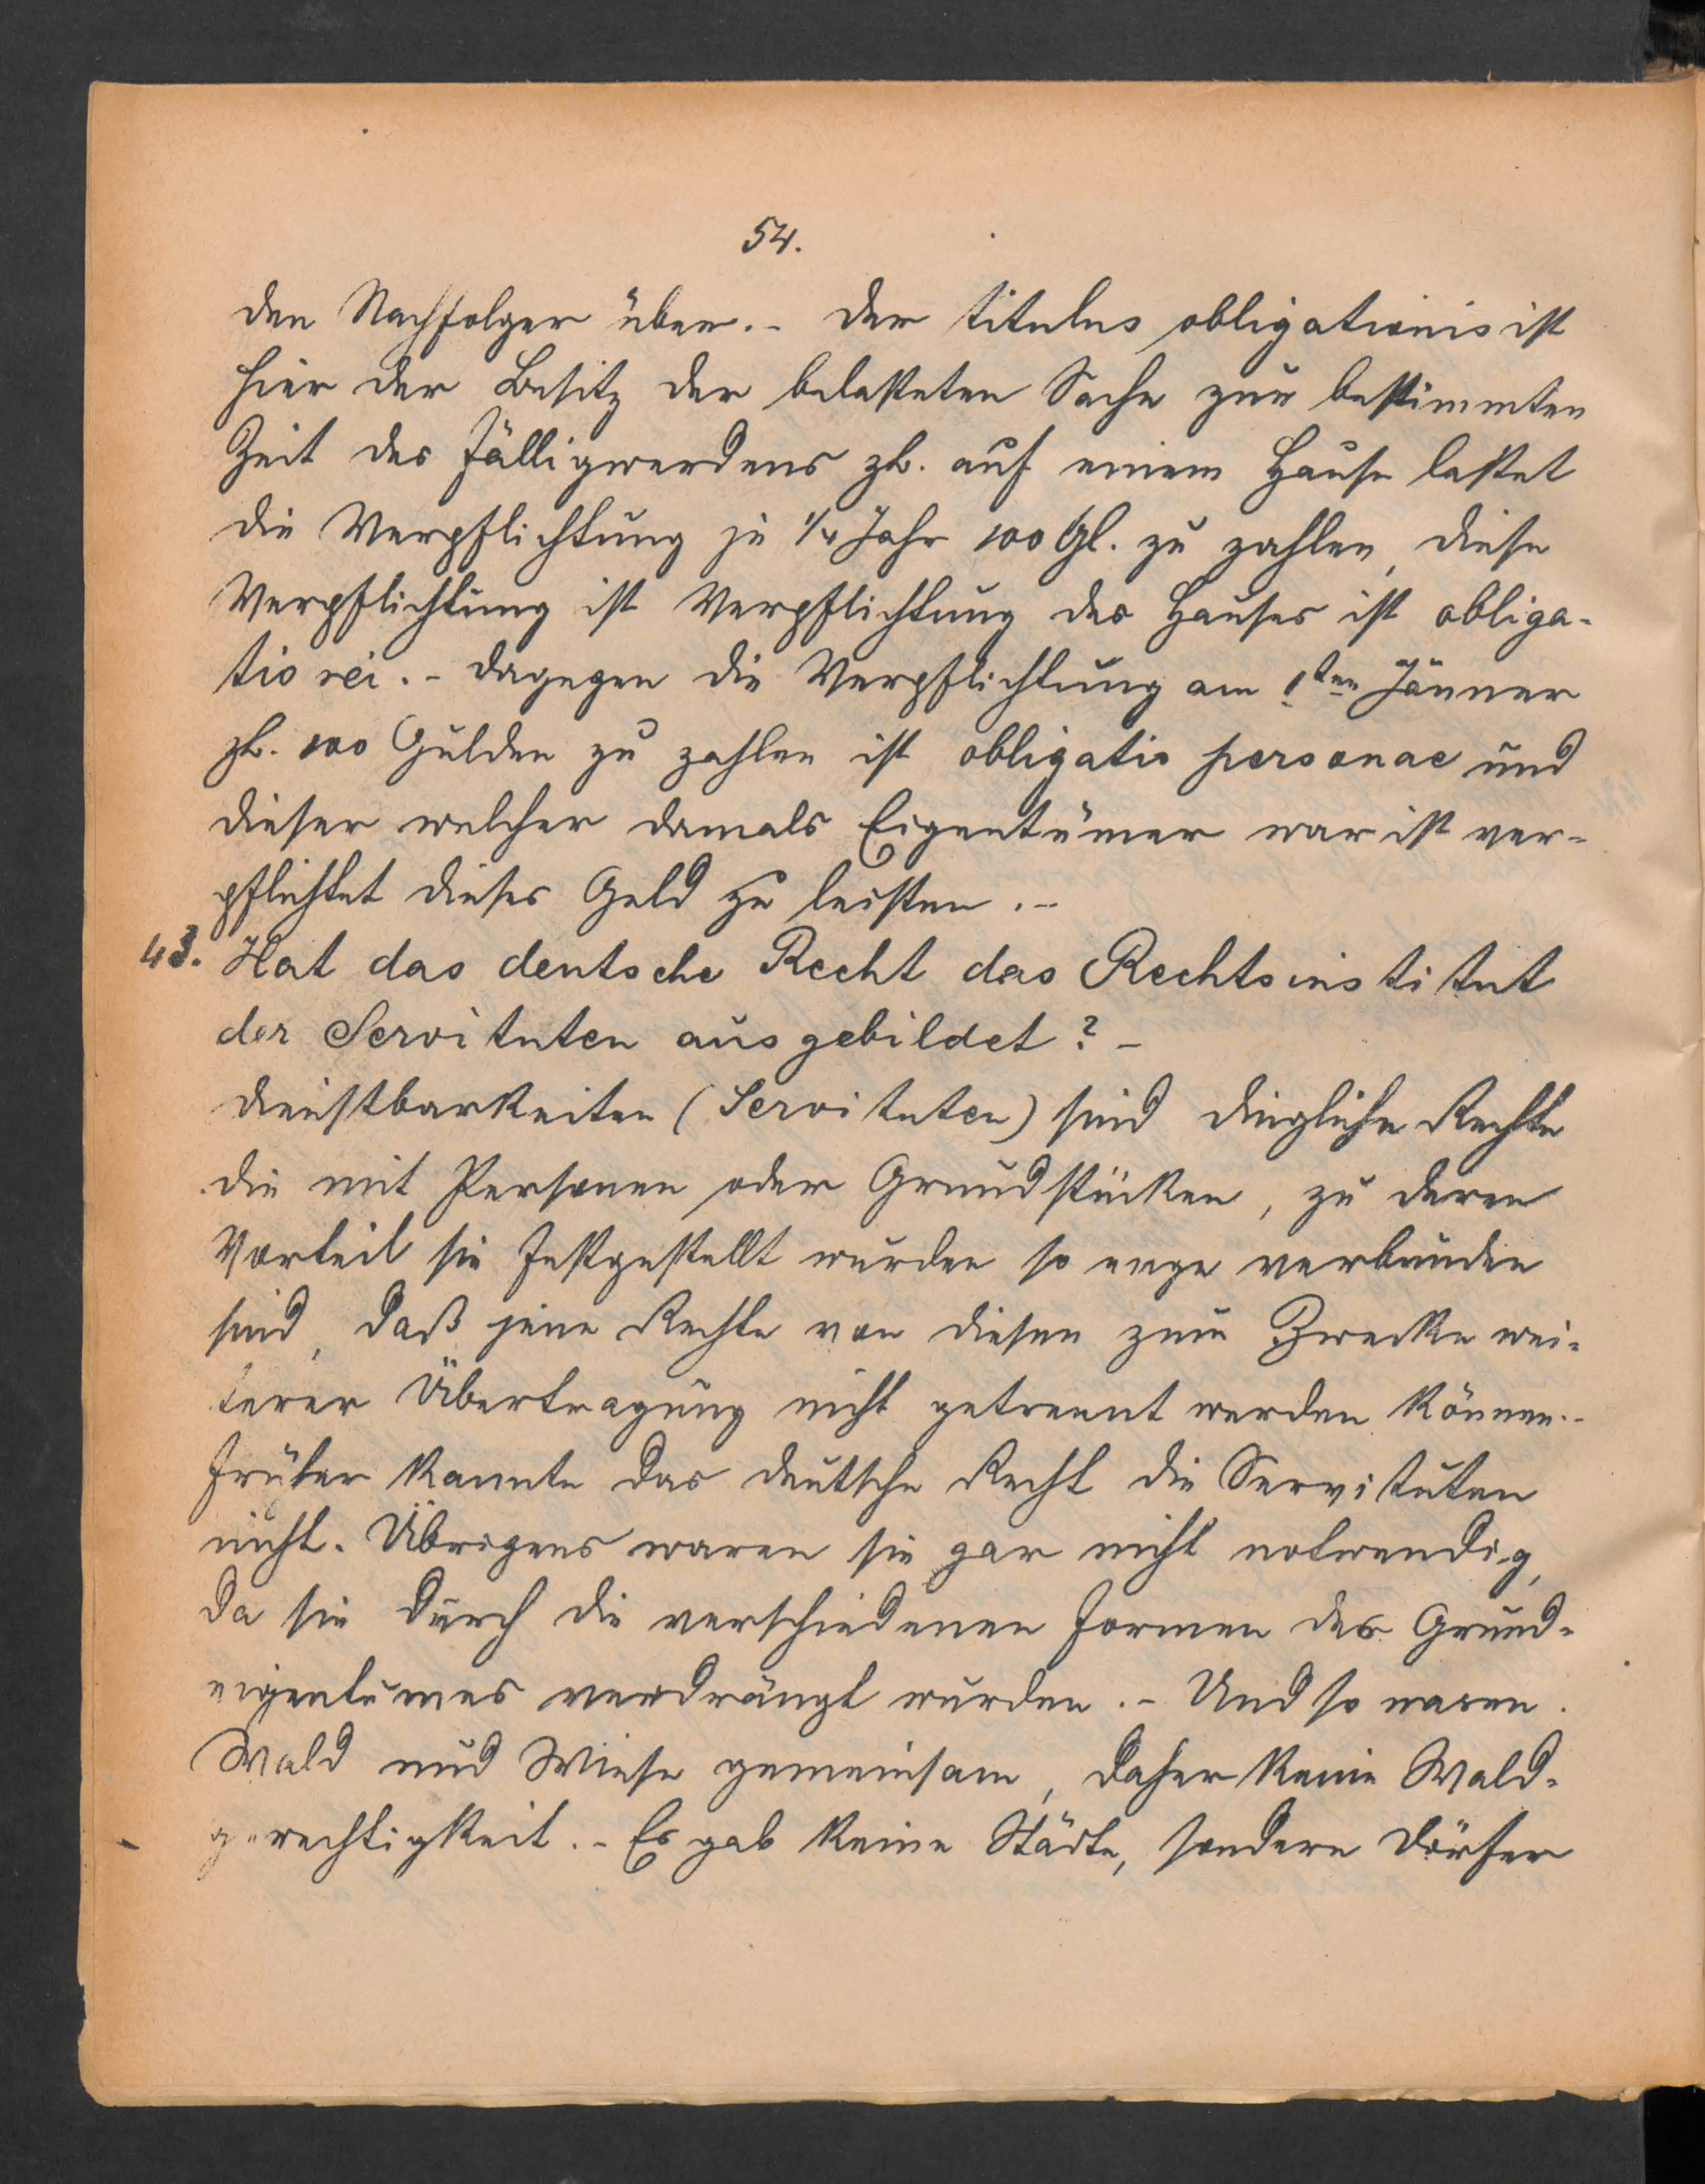 54.
den Nachfolger über.- Der titulus obligationis ist
hier der Besitz der belasteten Sache zur bestimmten
Zeit des Fälligwerdens zb. auf einem Hause lastet
die Verpflichtung je 1/4 Jahr 100 Gl. zu zahlen, diese
Verpflichtung ist Verpflichtung des Hauses ist obliga-
tio rei.- Dagegen die Verpflichtung am 1ten Jänner
zb. 100 Gulden zu zahlen ist obligatio personae und
dieser welcher damals Eigentümer war ist ver-
pflichtet dieses Geld zu leisten.-
43. Hat das deutsche Recht das Rechtsinstitut
der Servituten ausgebildet?-
Dienstbarkeiten (Servituten) sind dingliche Rechte
die mit Personen oder Grundstücken, zu deren
Vorteil sie festgestellt wurden so enge verbunden
sind, daß jene Rechte von diesen zum Zwecke wei-
terer Übertragung nicht getrennt werden können.-
Früher kannte das deutsche Recht die Servituten
nicht. Übrigens waren sie gar nicht notwendig,
da sie durch die verschiedenen Formen des Grund-
eigentumes verdrängt wurden.- Und so waren
Wald und Wiese gemeinsam, daher keine Wald-
gerechtigkeit.- Es gab keine Städte, sondern Dörfer